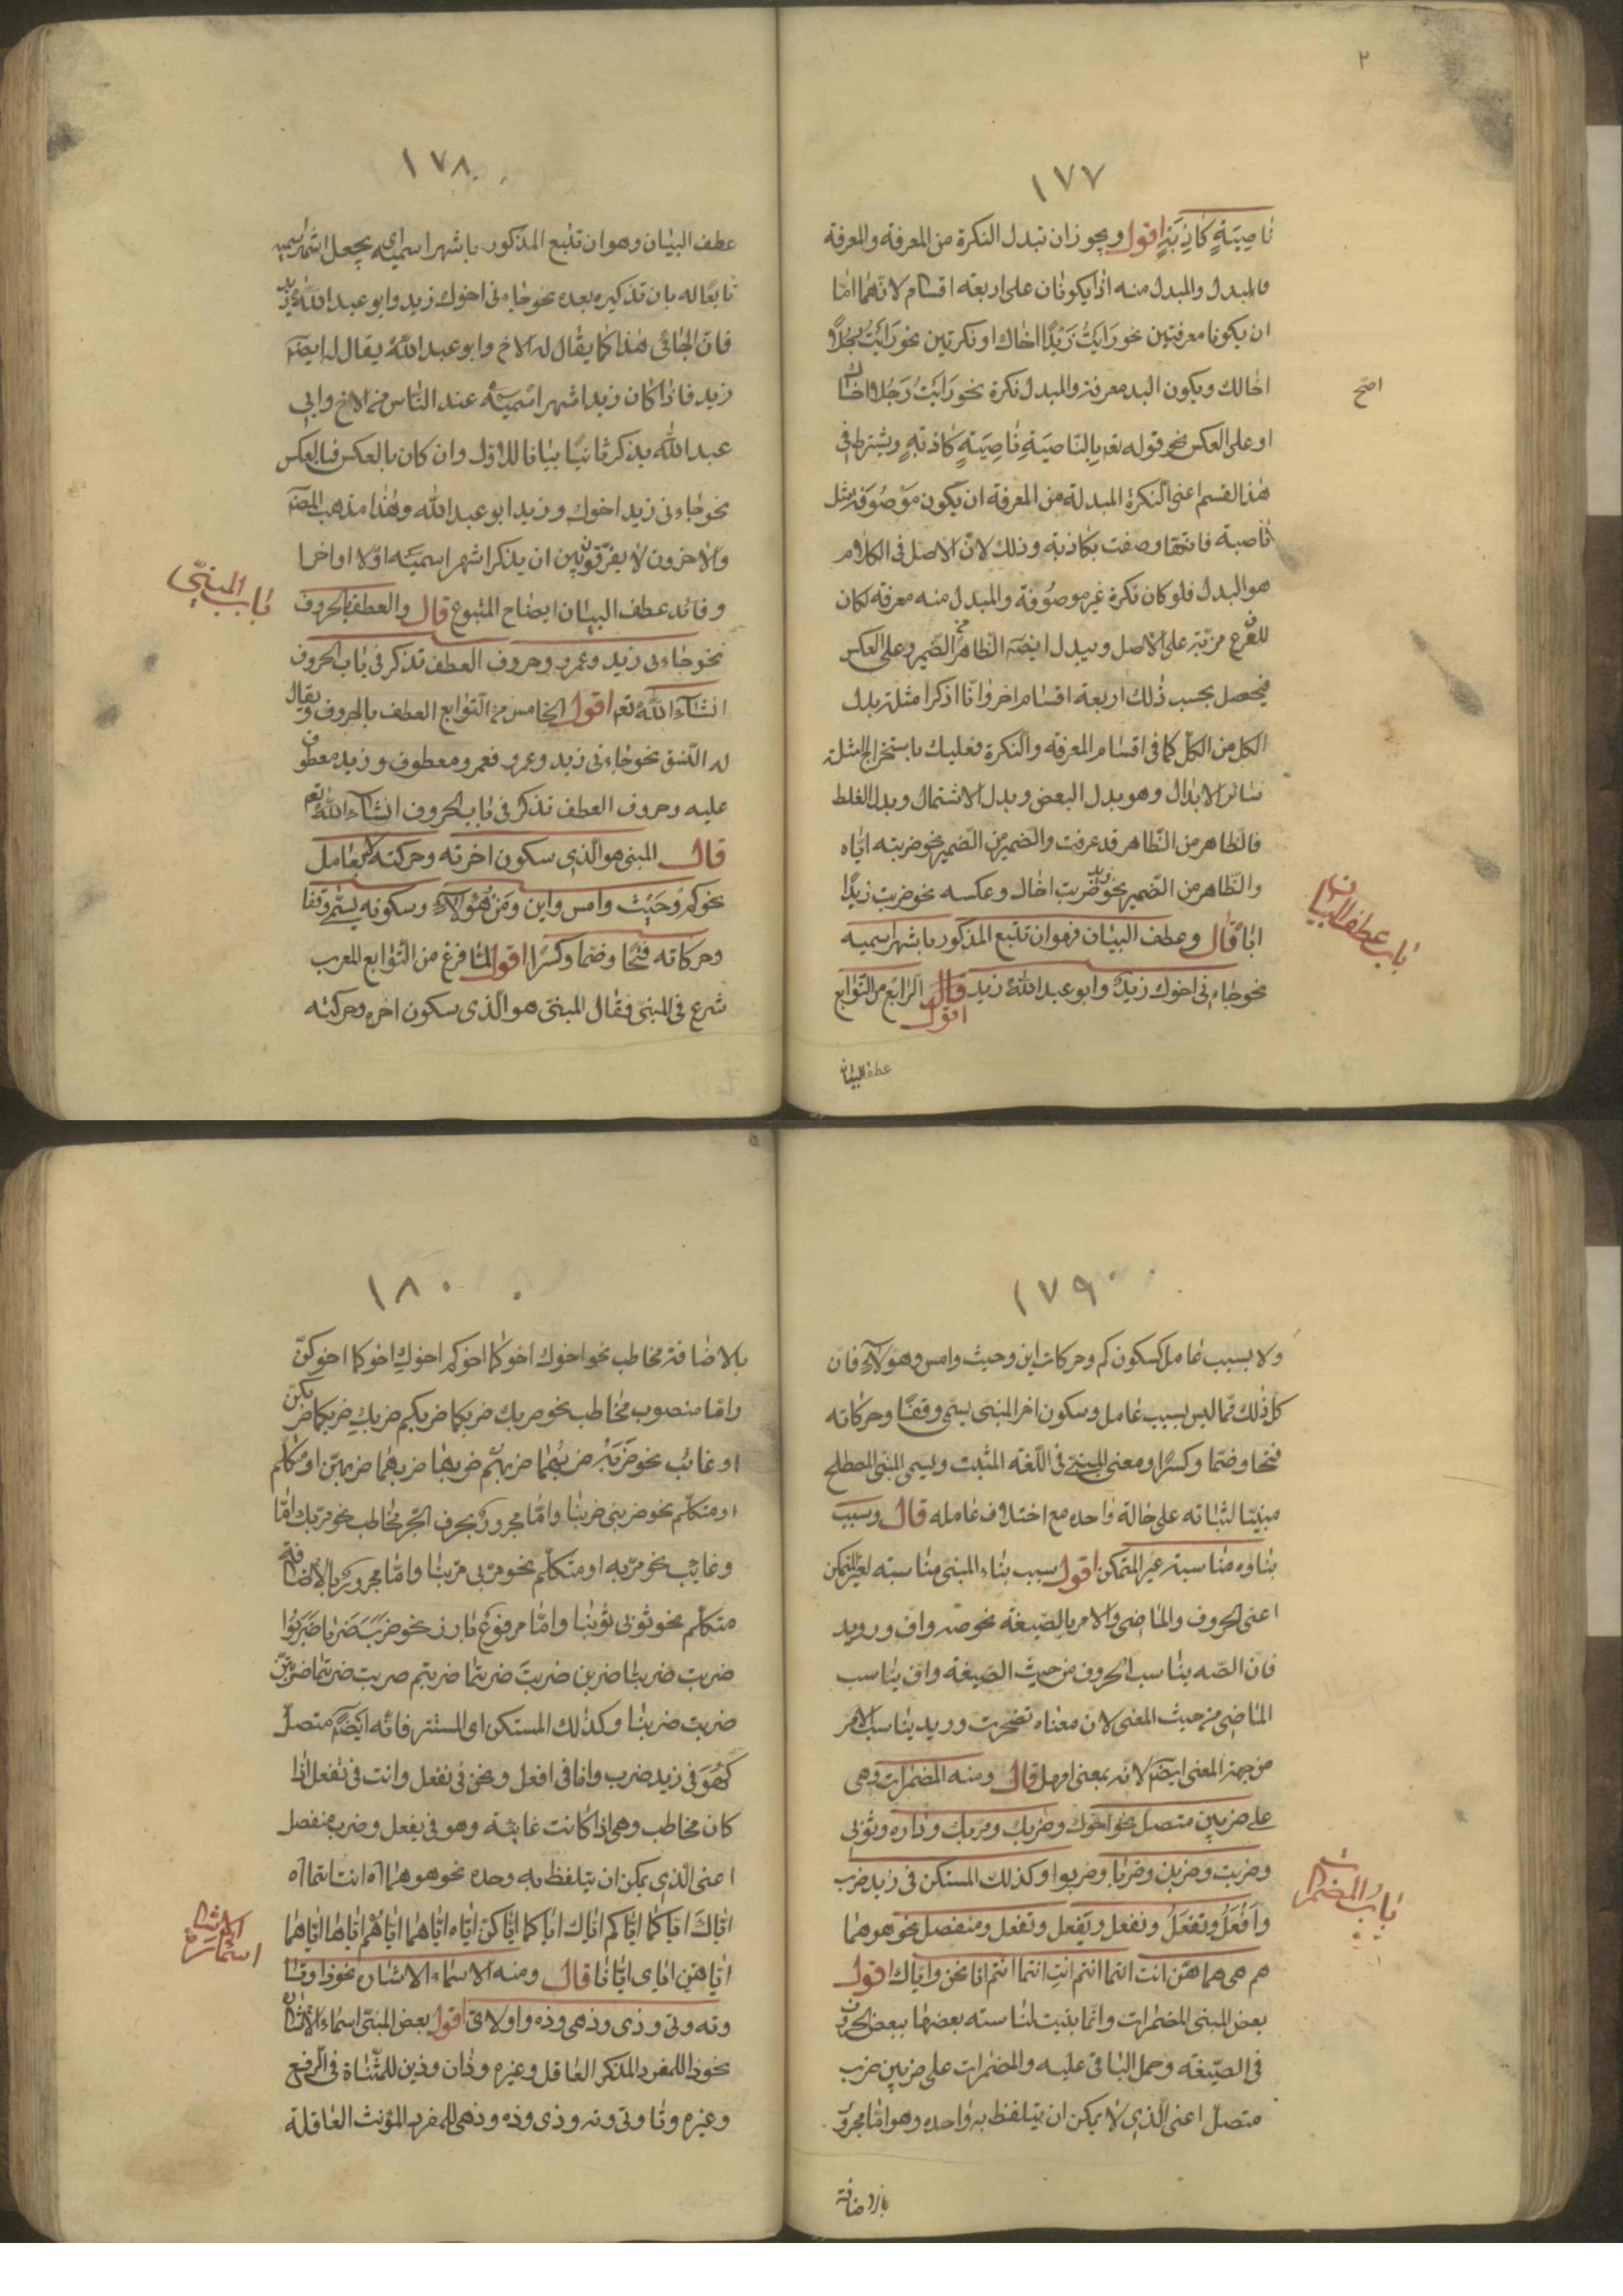 ٢
١٧٧
ناصِيَةٍ كاذِبَةٍ اقول ويجوز ان تبدل النكرة من المعرفة والمعرفة
فالمبدل والمبدل منه اذا يكونان على اربعة اقسام لانهما امّا
ان يكونا معرفتين نحو رَايَتُ زَيْدًا اخاك او نكرتين نحو رَايَتُ رجُلًا
اخالك ويكون البد معرفة والمبدل نكرة نحو رَايَتُ رَجُلا اخاك
اصح
او على العكس نحو قوله تعم بِالنّاصيَةِ ناصِيَةٍ كاذبَةٍ ويشترط فى
هذا القسم اعنى النكرة المبدلة من المعرفة ان يكون مَوْصُوفة مثل
ناصية فانّها وصفت بكاذبة وذلك لانّ الاصل فى الكلام
هو البدل فلو كان نكرة غير موصُوفة والمبدل منه معرفة لكان
للفرع مزيّة على الاصل ويبدل ايضَه الظاهر من الضمير وعلى العكس
فيحصل بحسب ذلك اربعة اقسام اخر وانّا اذكر امثلة بدل
الكل من الكلّ كما فى اقسام المعرفة والنكرة فعليك باستخراج امثلة
سائر الابدال وهو بدل البعض وبدل الاشتمال وبدل الغلط
فالظاهر من الظاهر قد عرفت والضمير من الضمير نحو ضربته ايّاه
والظاهر من الضمير نحو زيد ضربت اخاك وعكسه نحو ضربت زيدًا
ايّاه قال وعطف البيان فهو ان تتبع المذكور باشهر اسميه
باب عطف البيان
نحو جاءنى اخوك زيدٌ وابو عبد اللّه زيد قال اقول الرّابع من التّوابع
عطف البيان
١٧٨
عطف البيان وهو ان تتبع المذكور باشهر اسميه اى يجعل اشهر اسميه
تابعًا له بان تذكيره بعده نحو جاءنى اخوك زيد وابو عبد اللّه زيد
فانّ الجائى هذا كما يقال له الاخ وابو عبد اللّه يقال له ايضَه
زيد فاذا كان زيد اشهر اسميه عند النّاس من الاخ وابى
عبد اللّه يذكر ثانيًا بيانا للاوّل وان كان بالعكس فبالعكس
نحو جاءنى زيد اخوك و زيد ابو عبد اللّه وهذا مذهب المصَه
والاخرون لا يفرّقون بين ان يذكر اشهر اسميه اوّلا او اخرا
وفائد عطف البيان ايضاح المتبوع قال والعطف بالحروف
باب المبنىّ
نحو جاءنى زيد وعمرو وحروف العطف تذكر فى باب الحروف
انشاء اللّه تعم اقول الخامس من التّوابع العطف بالحروف ويقال
له النّسق نحو جاءنى زيد وعمرو فعمرو معطوف و زيد معطوف
عليه وحروف العطف تذكر فى باب الحروف انشاء اللّه تعم
قال المبنى هو الّذى سكون اخرته وحركته لا بعامل
نحو كم وحَيْث وامس واين ومن هؤلاء وسكونه يسمّى وقفا
وحركاته فتحًا وضما وكسرًا اقول لمّا فرغ من التّوابع المعرب
شرع فى المبنى فقال المبنى هو الّذى سكون اخره وحركته
١٧٩
ولا بسبب عامل كسكون كم وحركات اين وحيث وامس وهؤلاء فان
كل ذلك ممّا ليس بسبب عامل وسكون اخر المبنى يسمى وقفًا وحركاته
فتحًا وضمّا وكسرًا ومعنى المبنى فى اللّغة المثبت ويسمى المبنى المصطلح
مبنيّا لثباته على حالة واحده مع اختلاف عامله قال وسبب
بناوه مناسبة غير المتمكن اقول سبب بناء المبنى مناسبته لغير المتمكن
اعنى الحروف والماضى والامر بالصّيغة نحو صه واف ورويد
فانّ الصّه يناسب الحروف من حيث الصّيغة واف يناسب
الماضى من حيث المعنى لان معناه تضجّرت ورويد يناسب الامر
من جهة المعنى ايضَه لانه بمعنى امهل قال ومنه المضمرات وهى
على ضربين متصل نحو اخوك وضربك ومربك وداره وثوبى
وضربت وضربن وضربا وضربوا وكذلك المستكن فى زيد ضرب
باب المضمرات
وافْعَلُ وتفعَلُ ونفعل ويفعل وتفعل ومنفصل نحو هو هما
هم هى هما هنّ انت انتما انتم انتِ انتما انتم انا نحن واياك اقول
بعض المبنى المضمرات وانّما بنيت لمناسبته بعضها ببعض الحروف
فى الصّيغة وحمل الباقى عليه والمضمرات على ضربين ضرب
متصلّ اعنى الّذى لا يمكن ان يتلفظ به واحده وهو امّا مجرور
بالاضافة
١٨٠
بالاضافة مخاطب نحو اخوك اخوكما اخوكم اخوكِ اخوكما اخوكنّ
وامّا منصوب مخاطب نحو ضربك ضربكما ضربكم ضربكِ ضربكما ضربكن
او غائب نحو ضَرَبَهُ ضربهُما ضربهُم ضربها ضربهما ضربهنّ او متكلم
او متكلّم نحو ضربنى ضربنا وامّا مجرور بحرف الجّر مخاطب نحو مرّبك امّا
وغايب نحو مرّبه او متكلّم نحو مرّبى مرّبنا وامّا مجرور بالاضافة
متكلّم نحو ثوبى ثوبنا وامّا مرفوع بارز نحو ضرَبَ ضَربا ضَرَبُوا
ضربت ضربتا ضربن ضربتَ ضربتما ضربتم ضربت ضربتما ضربتنّ
ضربت ضربنا وكذلك المستكن اى المستتر فانّه ايضَه متصلّ
كَهُوَ فى زيد ضرب وانا فى افعل ونحن فى نفعل وانت فى تفعل اذا
كان مخاطب وهى اذا كانت غايبة وهو فى يفعل وضرب منفصل
اعنى الّذى يمكن ان يتلفظ به وحده نحو هو هما اه انت انتما اه
ايّاكَ ايّاكما ايّاكم ايّاكِ ايّاكما ايّاكنّ ايّاه ايّاهما ايّاهُم ايّاها ايّاهما
اسماء الاشارة
ايّاهنّ ايّاى ايّانا قال ومنه الاسماء الاشارة نحو ذا وتا
وته وتى وذى وذهى وذه واولاء اقول بعض المبنىّ اسماء الاشارة
نحو ذا للمفرد المذكر العاقل وغيره وذان وذين للمثنّاة فى الّرفع
وغيره وتا وتى وته وذى وذه وذهى للمفرد المؤنث العاقلة